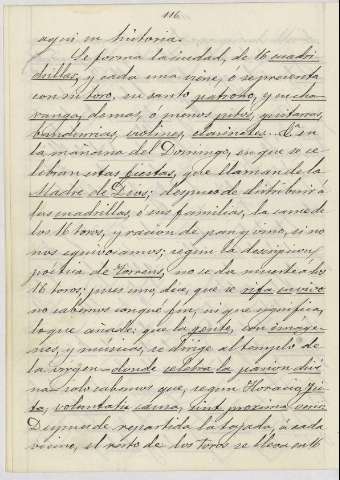 116
aqui su historia.
Se forma la ciudad, de 16 cuadri-
drillas, y cada una viene, ó representa
con su toro, su santo patrono, y su cha-
ranga, de mas, ó menos pitos, guitarras,
bandurrias, violines, clarinetes. Y en
la mañana del Domingo, en que se ce-
lebran estas fiestas, que llaman de la
Madre de Dios; despues de distribuir á
las cuadrillas, ó sus familias, la carne de
los 16 toros, y racion de pan y vino, si no
nos equivocamos; segun la descripcion
poética de Torrens, no se da muerte á los
16 toros; pues uno, dice, que se rifa en vivo
no sabemos con que fin, ni que significa,
lo que añade: que la gente, con image-
nes, y músicos, se dirige al templo de
la virgen donde celebra la pasion divi-
na solo sabemos que, segun Horacio, fic-
ta, voluptatis causa, sint proxima veris.
Despues de repartida la tajada, á cada
vecino, el resto de los toros se lleva en 16